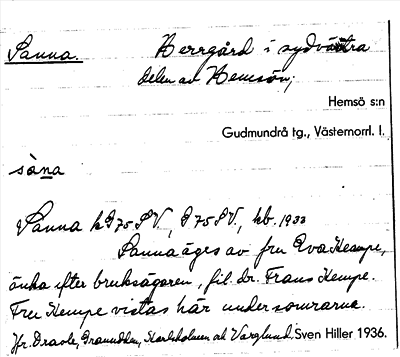 Sanna. Herrgård i sydvästra
delen av Hemsön;
Hemsö s:n
Gudmundrå tg., Västernorrl. l.
sàna
Sanna kG75SV, G75SV., hb. 1933
Sanna äges av fru Eva Kempe,
änka efter bruksägaren, fil. dr. Frans Kempe.
Fru Kempe vistas här under somrarna.
Jfr. Draule, Grannudden, Karlsholmen ok Varglund. Sven Hiller 1936.